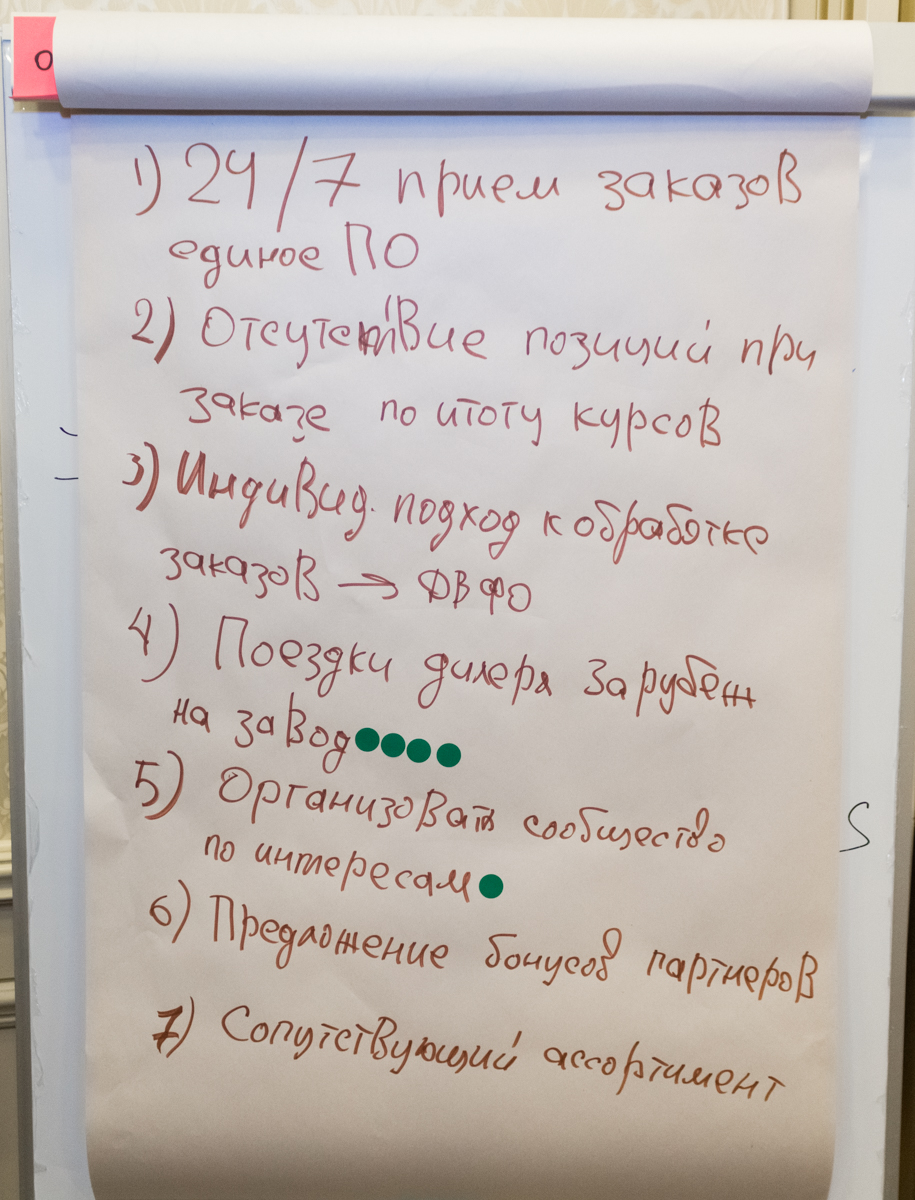 О
1) 24/7 прием заказов
единое ПО
2) Отсутствие позиций при
заказе по итогу курсов
3) Индивид. подход к обработке
заказов → ДВФО
4) Поездки дилера зарубеж
на завод
5) Организовать сообщество
по интересам
6) Предложение бонусов партнеров
7) Сопутствующий ассортимент
S